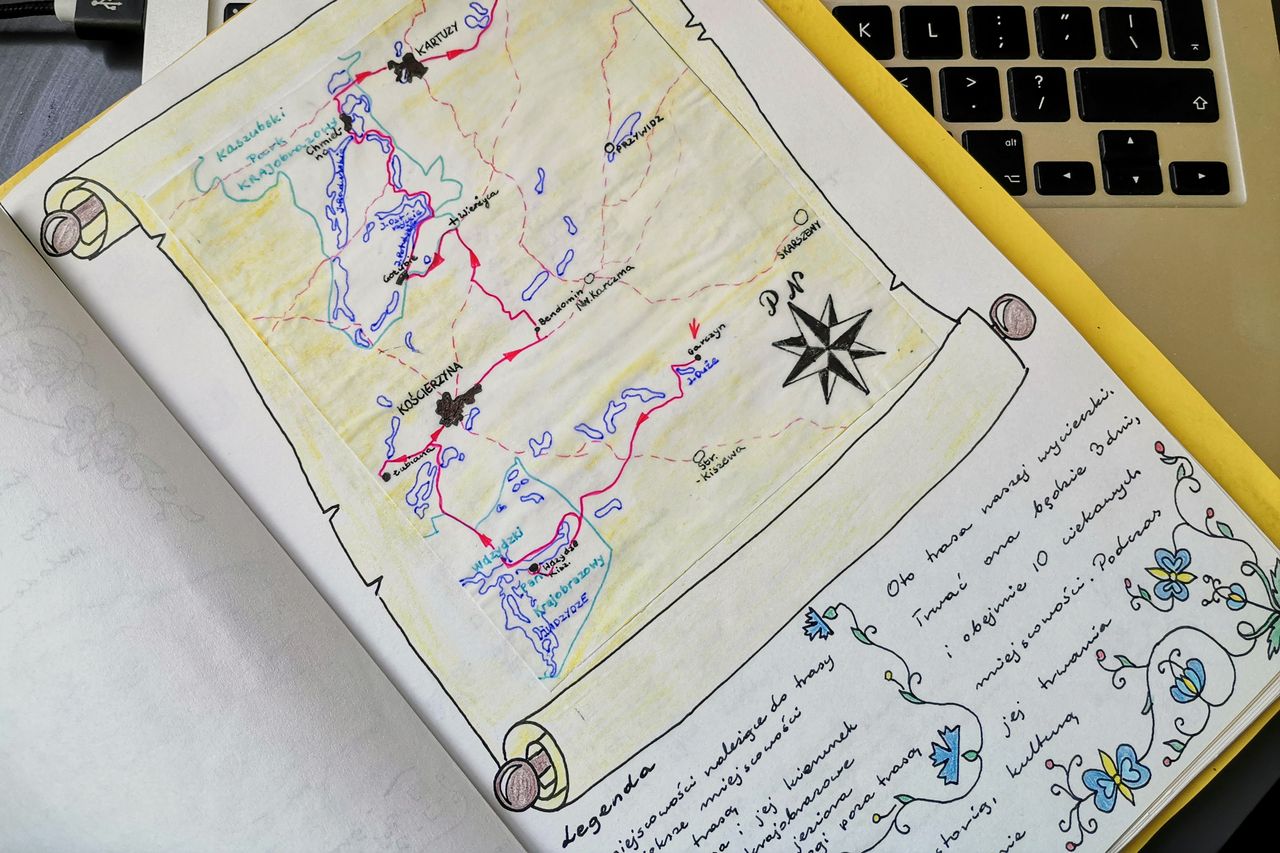 KARTUZY
Kaszubski
Park
KRAJObRAZOwy
Chmiel-
no
J. Raduńskie
PRZYWIDZ
Wieżyca
SKARSZEWY
Bendomin
Nw. Karczma
P N
Garczyn
J. DUŻE
KOŚCIERZYNA
Łubiana
Sbr.
-Kiszewa
Wdzydzki
Park
Krajobrazowy
Wdzydze
Kisz.
WDZYDZE
Oto trasa naszej wycieczki.
Trwać ona będzie 3 dni,
i obejmie 10 ciekawych
miejscowości. Podczas
jej trwania
kulturą
Legenda
miejscowości należące do trasy
miejscowości
trasą
a i jej kierunek
krajobrazowe
jeziora
poza trasą
K
L
:
;
"
'
|
\
>
.
?
/
alt